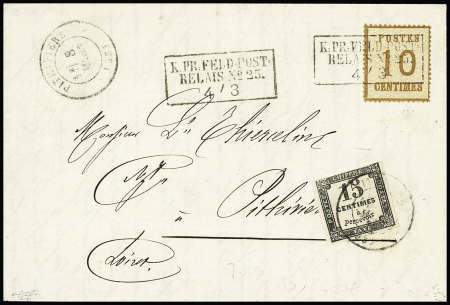 PITHIVIERS (43)
8
K.PR.FELD-POST-
RELAIS No 25.
4/3
K.PR.FELD-POST-
RELAIS No
4/3
POSTES
10
CENTIMES
Monsieur
15
CENTIMES
à
percevoir
à Pithiviers
Loiret